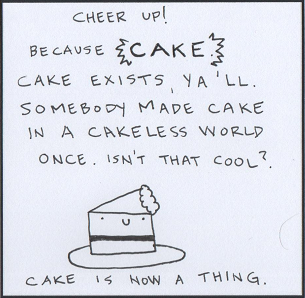 CHEER UP!
BECAUSE CAKE.
CAKE EXISTS, YA'LL.
SOMEBODY MADE CAKE
IN A CAKELESS WORLD
ONCE. ISN'T THAT COOL?
CAKE IS NOW A THING.